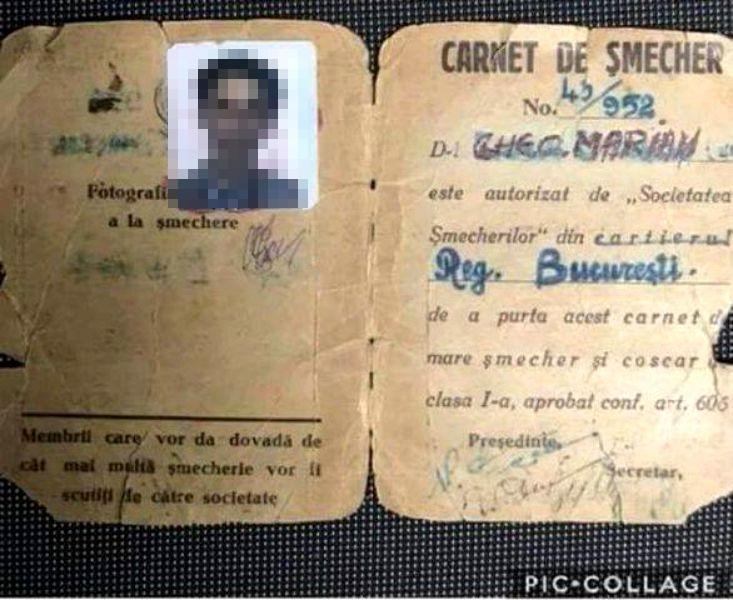 Fotografi
a la șmechere
Membrii care vor da dovadă de
cât mai multă șmecherie vor fi
scutiți de către societate
CARNET DE ȘMECHER
No. 43/952
D-l GHEO. MARIAN
este autorizat de „Societatea
Șmecherilor" din cartierul
Reg. București.
de a purta acest carnet d
mare șmecher și coscar
clasa I-a, aprobat conf. art. 605
Președinte,
Secretar,
PIC•COLLAGE